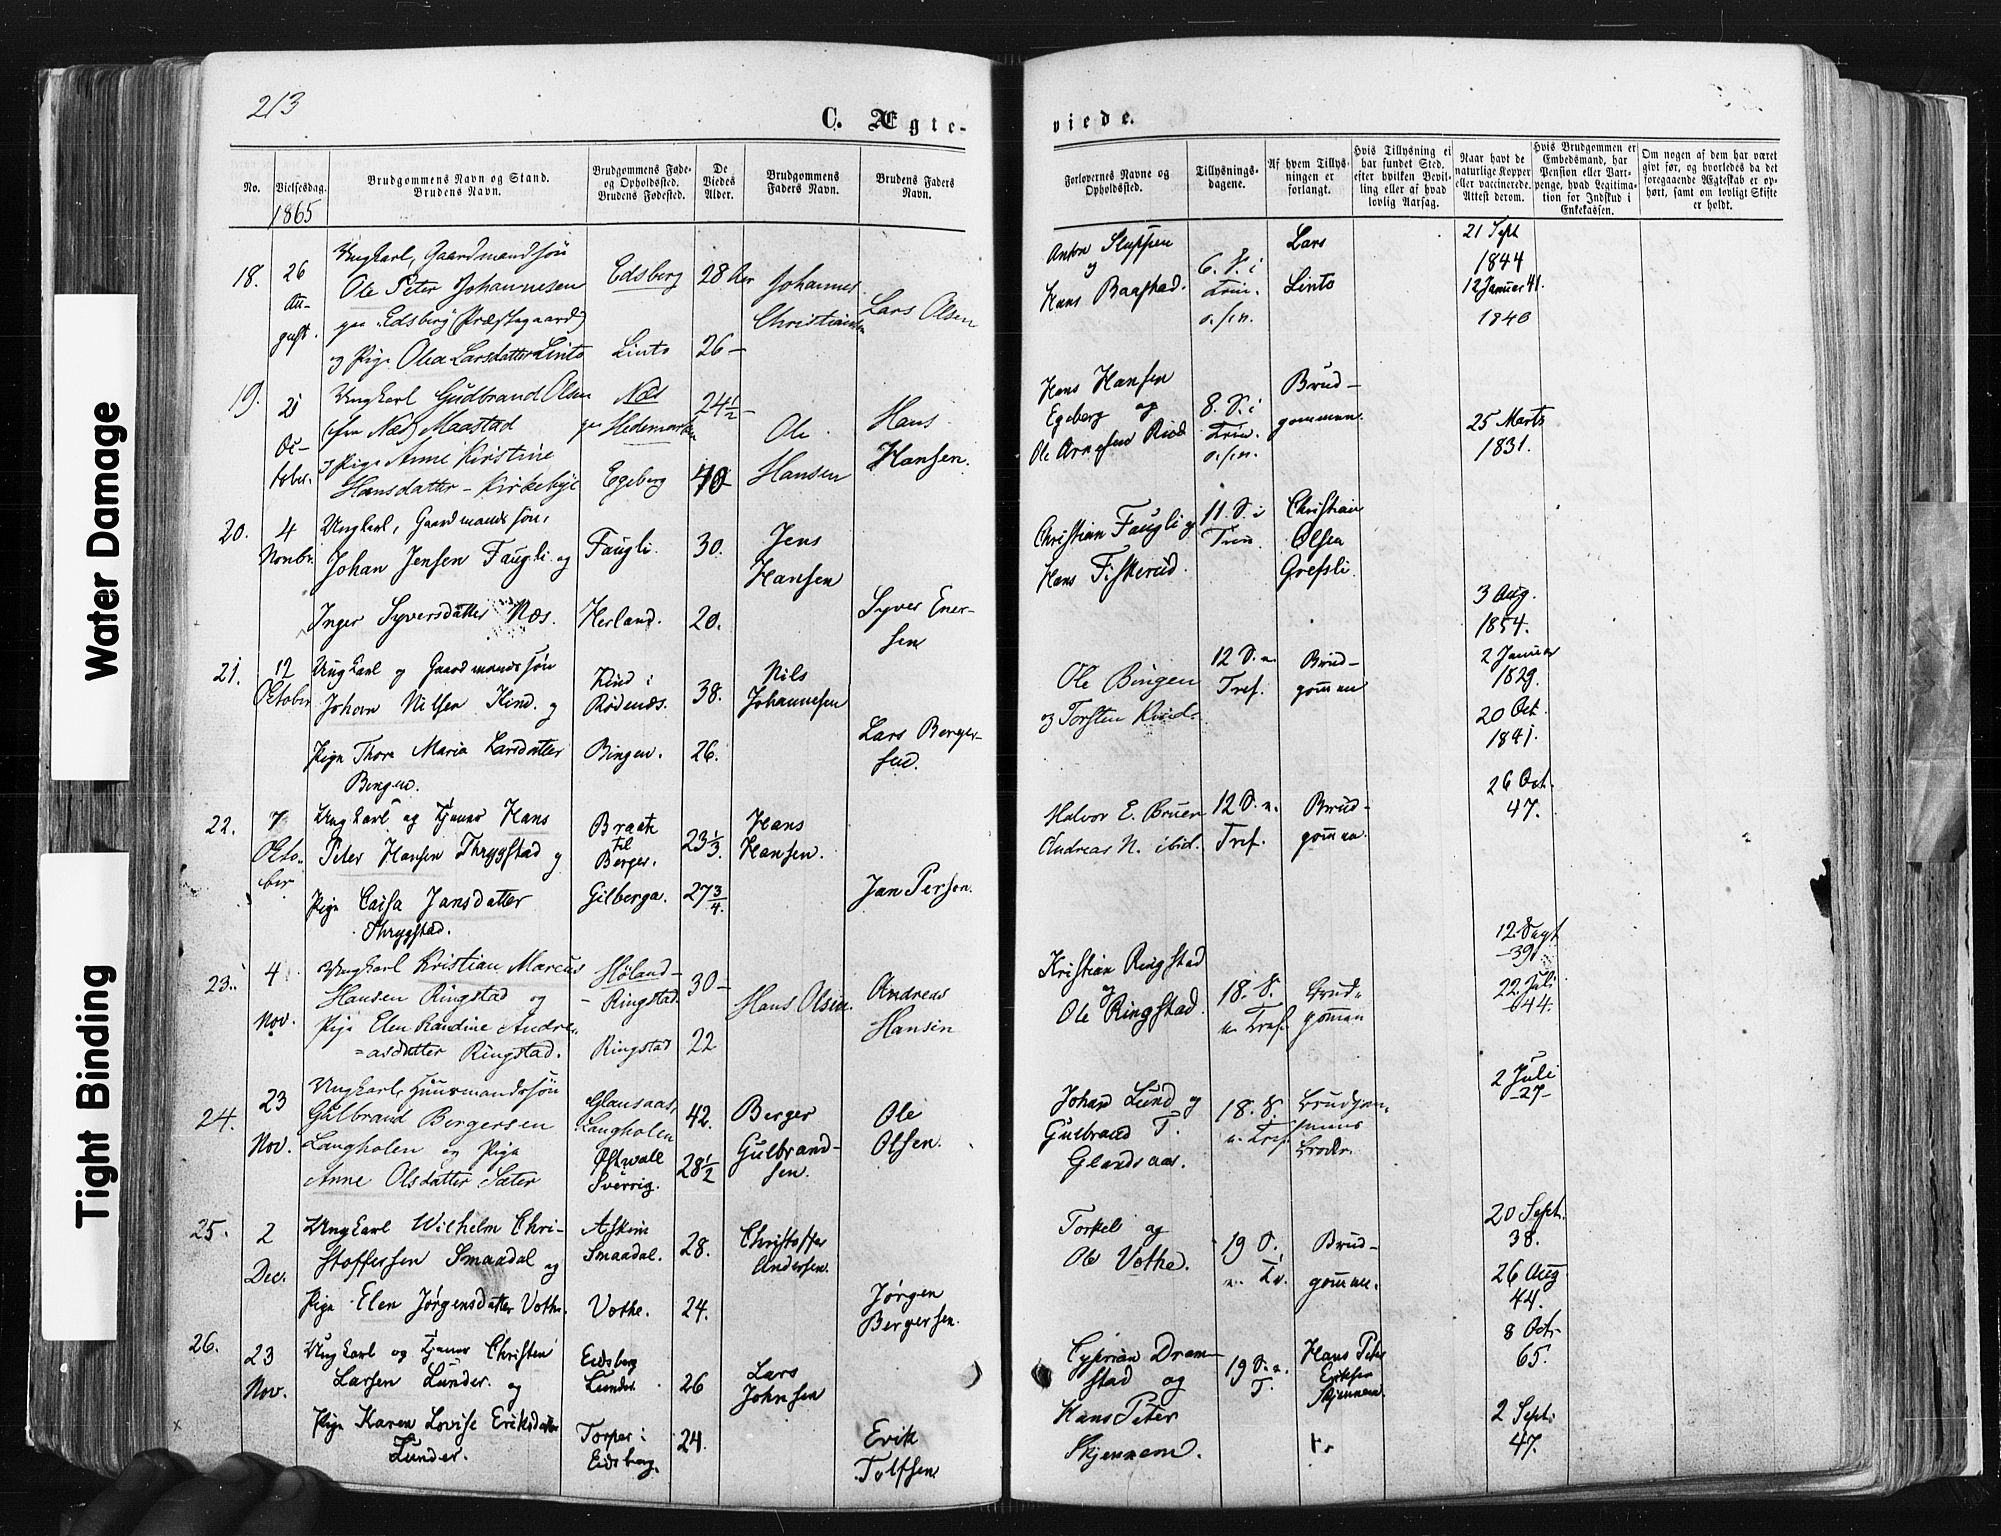 Water Damage
Tight Binding
213
C. Ægte-
viede.
No.
Vielsesdag.
1865
Brudgommens Navn og Stand.
Brudens Navn.
Brudgommens Føde-
og Opholdsted.
Brudens Fødested.
De
Viedes
Alder.
Brudgommens
Faders Navn.
Brudens Faders
Navn.
Forlovernes Navne og
Opholdsted.
Tillysnings-
dagene.
Af hvem Tillys-
ningen er
forlangt.
Hvis Tillysning ei
har fundet Sted,
efter hvilken Bevil-
ling eller af hvad
lovlig Aarsag.
Naar havt de
naturlige Kopper
eller vaccinerede.
Attest derom.
Hvis Brudgommen er
Embedsmand, har
Pension eller Vart-
penge, hvad Legitima-
tion for Indskud i
Enkekassen.
Om nogen af dem har været
gift før, og hvorledes da det
foregaaende Ægteskab er op-
hørt, samt om lovligt Skifte
er holdt.
18.
26
Au-
gust.
Ungkarl, Gaardmandssøn
Ole Peter Johannesen
paa Edsberg (Præstegaard)
og Pige Olea Larsdatter Linto
Edsberg
Linto
28 Aar
26 –
Johannes
Christiansen
Lars Olsen
Anton Sluppen
og
Hans Baastad.
6. S. i
Trin.
o. s. v.
Lars
Linto
21 Sept
1844
12 Januar 41.
1840
19.
21
Oc-
tober.
Ungkarl Gudbrand Olsen
(fra Næs) Maastad
og Pige Anne Kirstine
Hansdatter – Kirkebye
Næs
paa Hedemarken
Egeberg
24½ –
40
Ole
Hansen
Hans
Hansen.
Hans Hansen
Egeberg og
Ole Arnesen Riud
8. S. i
Trin.
o. s. v.
Brud-
gommen.
25 Marts
1831.
20.
4
Novbr.
Ungkarl, Gaardmandssøn,
Johan Jensen Faugli og
Inger Syversdatter Næs.
Faugli.
Herland.
30.
20.
Jens
Hansen
Syver Ener-
sen
Christian Faugli og
Hans Fiskerud.
11. S. i
Trin.
Christian
Olsen
Grefsli.
3 Aug.
1854.
21.
12
October
Ungkarl og Gaardmandssøn
Johan Nilsen Kind og
Pige Thora Maria Larsdatter
Bingen.
Kind i
Rødenæs.
Bingen.
38.
26.
Nils
Johannesen
Lars Berger-
sen.
Ole Bingen
og Torsten Kind.
12 S. e.
Tref.
Brud-
gommen
2 Januar
1829.
20 Oct.
1841.
22.
7
Octo-
ber
Ungkarl og Tjener Hans
Peter Hansen Thrygstad og
Pige Caisa Jansdatter
Thrygstad.
Braate
til
Berger.
Gilberga.
23⅓
27¾
Hans
Hansen.
Jan Persen.
Halvor E. Bruer
Andreas N. ibid.
12 S. e.
Tref.
Brud-
gommen.
26 Oct.
47.
23.
4
Nov.
Ungkarl Kristian Marcus
Hansen Ringstad og
Pige Elen Randine Andre-
asdatter Ringstad.
Høland –
– Ringstad.
Ringstad
30 –
22
Hans Olsen.
Andreas
Hansen
Kristian Ringstad
og
Ole Ringstad.
18. S.
e. Tref.
Brud-
gommen
12. Sept
– 39
22. Juli
– 44.
24.
23
Nov.
Ungkarl, Huusmandssøn
Gulbrand Bergersen
Langholen og Pige
Anne Olsdatter Sæter
Glansaas,
Langholen
Østvall
Sverrig.
42.
28½
Berger
Gulbrand-
sen.
Ole
Olsen.
Johan Lund og
Gulbrand T.
Glandsaas.
18. S.
e. Tref.
Brudgom-
mens
Broder.
2 Juli
– 27 –
25.
2
Dec.
Ungkarl Wilhelm Chri-
stoffersen Smaadal og
Pige Elen Jørgensdatter Vothe.
Askim
Smaadal.
Vothe.
28.
24.
Christoffer
Andersen.
Jørgen
Bergersen.
Torkel og
Ole Vothe.
19 S.
e. Tr.
Brud-
gommen.
20 Sept.
38.
26 Aug
44.
26.
23
Nov.
Ungkarl og Tjener Christen
Larsen Lunder og
Pige Karen Lovise Eriksdatter
Lunder.
Eidsberg
Lunder.
Torper i
Eidsberg.
26
24.
Lars
Johnsen
Erik
Tolfsen
Cyprian Dram-
stad og
Hans Peter
Skjennem.
19 S. e.
T.
Hans Peter
Eriksen
Skjennem.
8 Oct.
65.
2 Sept.
47.